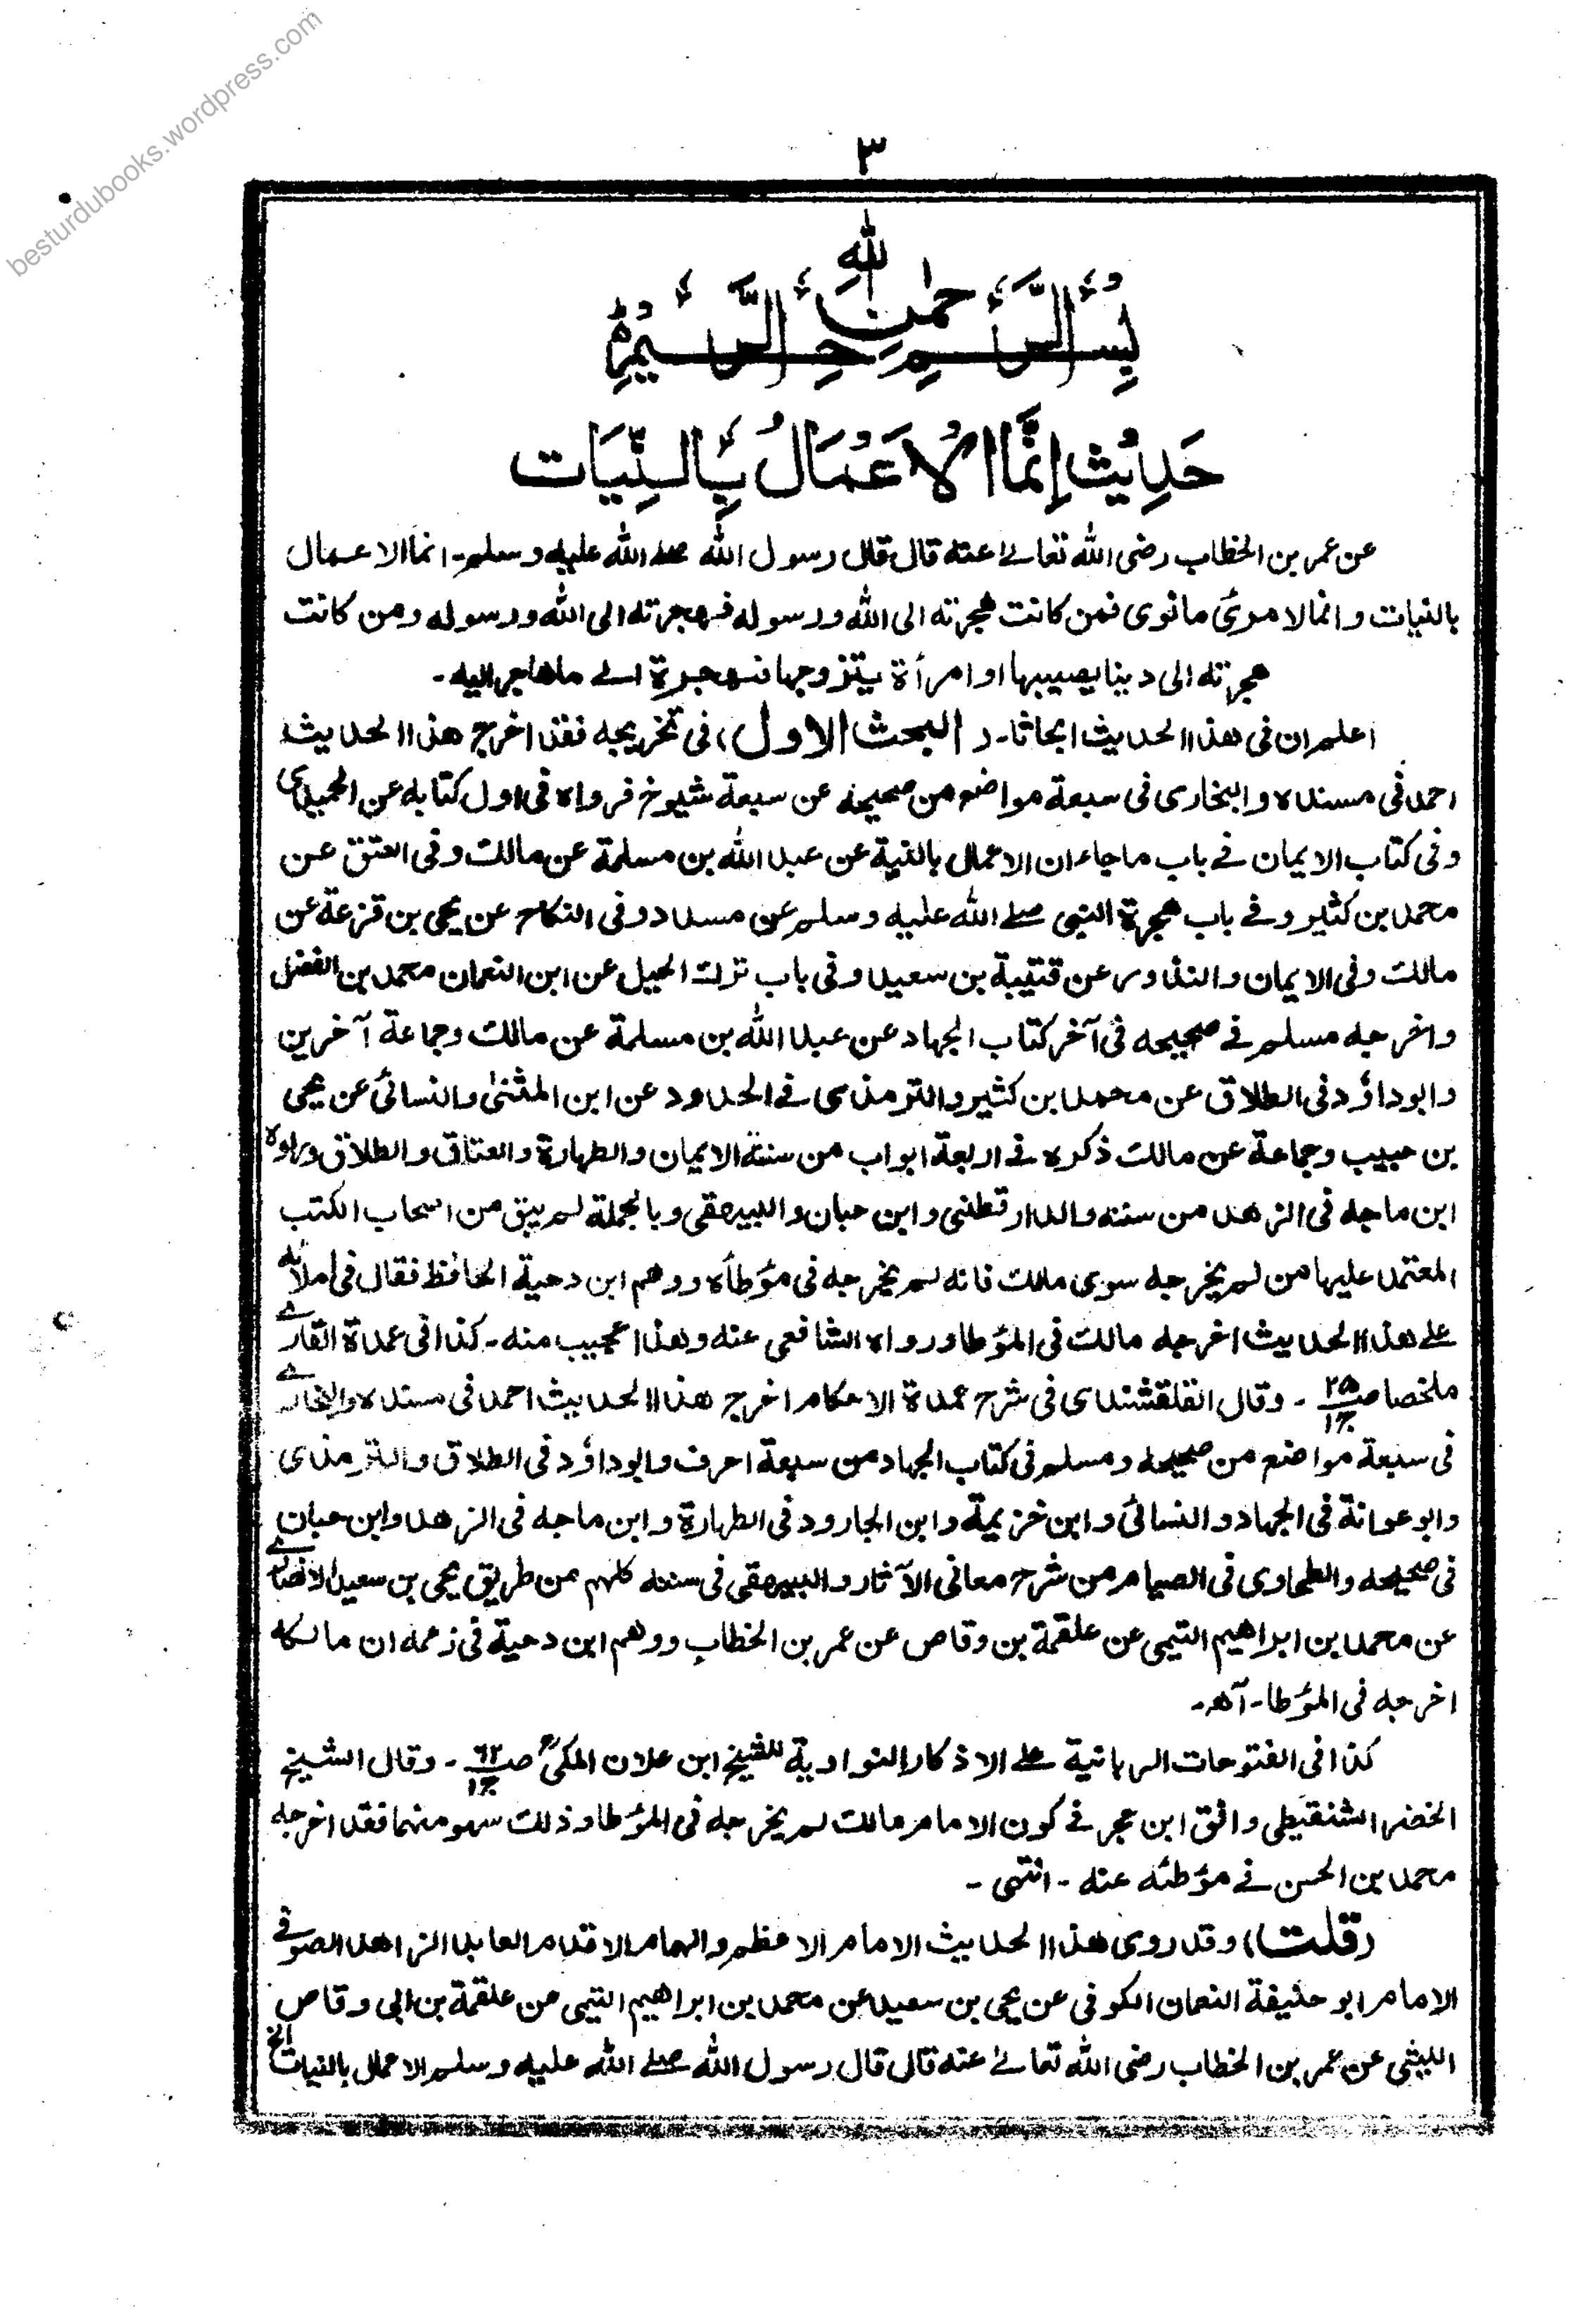 besturdubooks.wordpress.com
٣
بِسْمِ اللهِ الرَّحْمٰنِ الرَّحِيْمِ
حَدِيْث إِنَّمَا الْاَعْمَالُ بِالنِّيَات
عن عمر بن الخطاب رضى الله تعالے عنه قال قال رسول الله صلے الله عليه وسلم۔ انما الاعمال
بالنيات وانما لامرئ مانوى فمن كانت هجرته الى الله ورسوله فهجرته الى الله ورسوله ومن كانت
هجرته الى دينا يصيبها او امرأة يتزوجها فهجرة الے ماهاجر اليه۔
اعلم ان فى هذا الحديث ابحاثا۔ (البحث الاول) فى تخريجه فقد اخرج هذا الحديث
احمد فى مسنده والبخارى فى سبعة مواضع من صحيحه عن سبعة شيوخ فرواه فى اول كتابه عن الحميدى
وفى كتاب الايمان فے باب ماجاء ان الاعمال بالنية عن عبد الله بن مسلمة عن مالك وفى العتق عن
محمد بن كثير وفے باب هجرة النبى صلے الله عليه وسلم عن مسدد وفى النكاح عن يحيى بن قزعة عن
مالك وفى الايمان والنذور عن قتيبة بن سعيد وفى باب ترك الحيل عن ابن النعمان محمد بن الفضل
واخرجه مسلم فے صحيحه فى آخر كتاب الجهاد عن عبد الله بن مسلمة عن مالك وجماعة آخرين
وابوداؤد فى الطلاق عن محمد بن كثير والترمذى فے الحدود عن ابن المثنىٰ والنسائى عن يحيى
بن حبيب وجماعة عن مالك ذكره فے اربعة ابواب من سننه الايمان والطهارة والعتاق والطلاق ورواه
ابن ماجه فى الزهد من سننه والدارقطنى وابن حبان والبيهقى وبالجملة لم يبق من اصحاب الكتب
المعتمد عليها من لم يخرجه سوى مالك فانه لم يخرجه فى مؤطأه ووهم ابن دحية الحافظ فقال فى أملائه
علے هذا الحديث اخرجه مالك فى المؤطا ورواه الشافعى عنه وهذا عجيب منه۔ كذا فى عمدة القارے
ملخصا صـ ٢٥ ج١ ۔ وقال القلقشندى فى شرح عمدة الاحكام اخرج هذا الحديث احمد فى مسنده والبخارے
فى سبعة مواضع من صحيحه ومسلم فى كتاب الجهاد من سبعة احرف وابوداؤد فى الطلاق والترمذى
وابوعوانة فى الجهاد والنسائى وابن خزيمة وابن الجارود فى الطهارة وابن ماجه فى الزهد وابن حبان
فى صحيحه والطحاوى فى الصيام من شرح معانى الآثار والبيهقى فى سننه كلهم من طريق يحيى بن سعيد الانصارے
عن محمد بن ابراهيم التيمى عن علقمة بن وقاص عن عمر بن الخطاب ووهم ابن دحية فى زعمه ان مالكا
اخرجه فى المؤطا۔ آھ۔
كذا فى الفتوحات الربانية علے الاذكار النواوية للشيخ ابن علان المكىؒ صـ ٦٢ ج١ ۔ وقال الشيخ
الخضر الشنقيطى وافق ابن حجر فے كون الامام مالك لم يخرجه فى المؤطا وذلك سهو منهما فقد اخرجه
محمد بن الحسن فے مؤطئه عنه ۔ انتهى ۔
(قلت) وقد روى هذا الحديث الامام الاعظم والهمام الاقدام العابد الزاهد الصوفے
الامام ابو حنيفة النعمان الكوفى عن يحيى بن سعيد عن محمد بن ابراهيم التيمى عن علقمة بن ابى وقاص
الليثى عن عمر بن الخطاب رضى الله تعالےٰ عنه قال قال رسول الله صلے الله عليه وسلم الاعمال بالنيات الخ